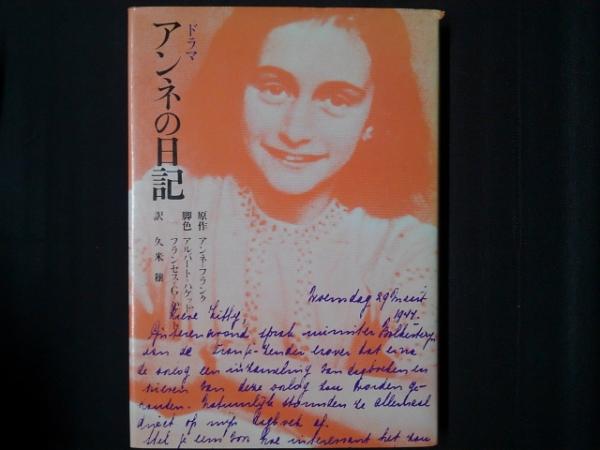 ドラマ
アンネの日記
原作 アンネ・フランク
脚色 アルバート・ハケット
フランセス・G
訳 久米穣
Woensdag 29 Maart
1944.
Lieve Kitty,
Gisteren avond sprak minister Bolkesteyn
aan de Oranje-zender erover dat er na
de oorlog een inzameling van dagboeken en
brieven van deze oorlog zou worden ge-
houden. Natuurlijk stormden ze allemaal
direct op mijn dagboek af.
Stel je eens voor hoe interessant het zou